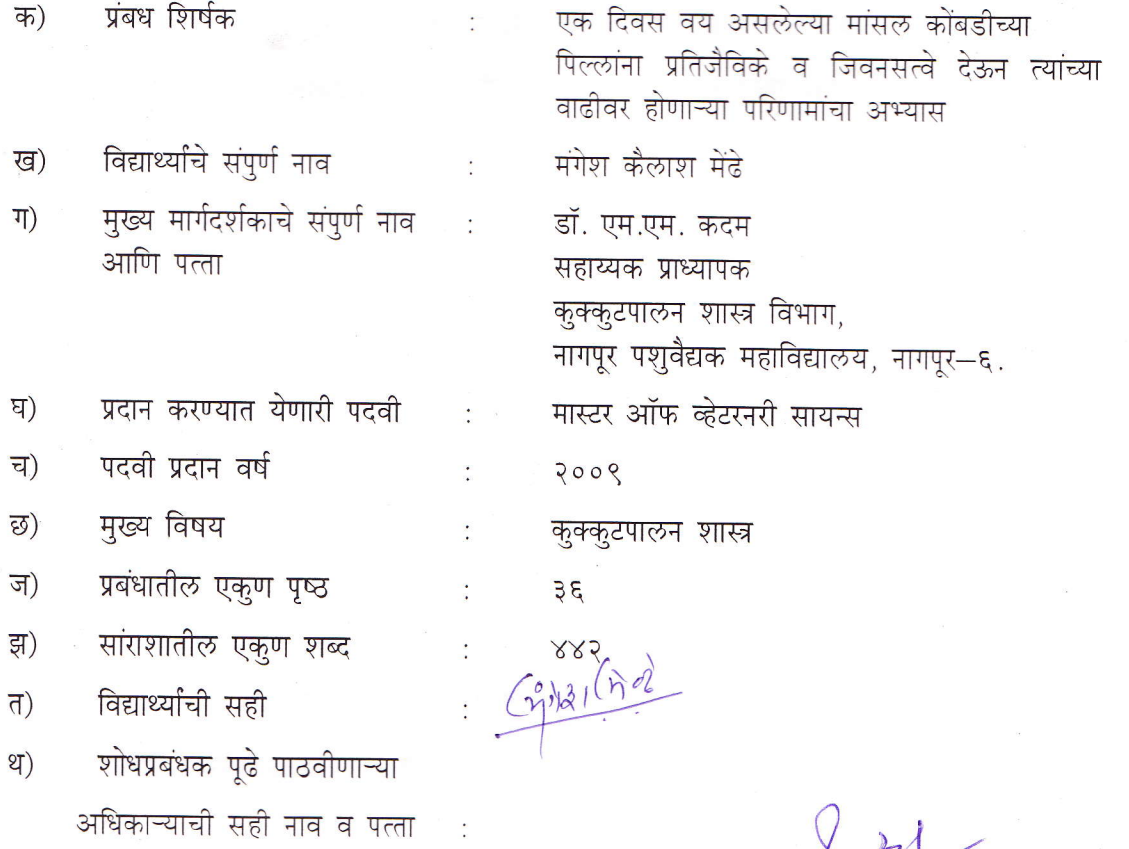 क) प्रंबध शिर्षक : एक दिवस वय असलेल्या मांसल कोंबडीच्या
पिल्लांना प्रतिजैविके व जिवनसत्वे देऊन त्यांच्या
वाढीवर होणाऱ्या परिणामांचा अभ्यास
ख) विद्यार्थ्याचे संपुर्ण नाव : मंगेश कैलाश मेंढे
ग) मुख्य मार्गदर्शकाचे संपुर्ण नाव : डॉ. एम.एम. कदम
आणि पत्ता सहाय्यक प्राध्यापक
कुक्कुटपालन शास्त्र विभाग,
नागपूर पशुवैद्यक महाविद्यालय, नागपूर–६.
घ) प्रदान करण्यात येणारी पदवी : मास्टर ऑफ व्हेटरनरी सायन्स
च) पदवी प्रदान वर्ष : २००९
छ) मुख्य विषय : कुक्कुटपालन शास्त्र
ज) प्रबंधातील एकुण पृष्ठ : ३६
झ) सांराशातील एकुण शब्द : ४४२
त) विद्यार्थ्याची सही :
थ) शोधप्रबंधक पूढे पाठवीणाऱ्या
अधिकाऱ्याची सही नाव व पत्ता :